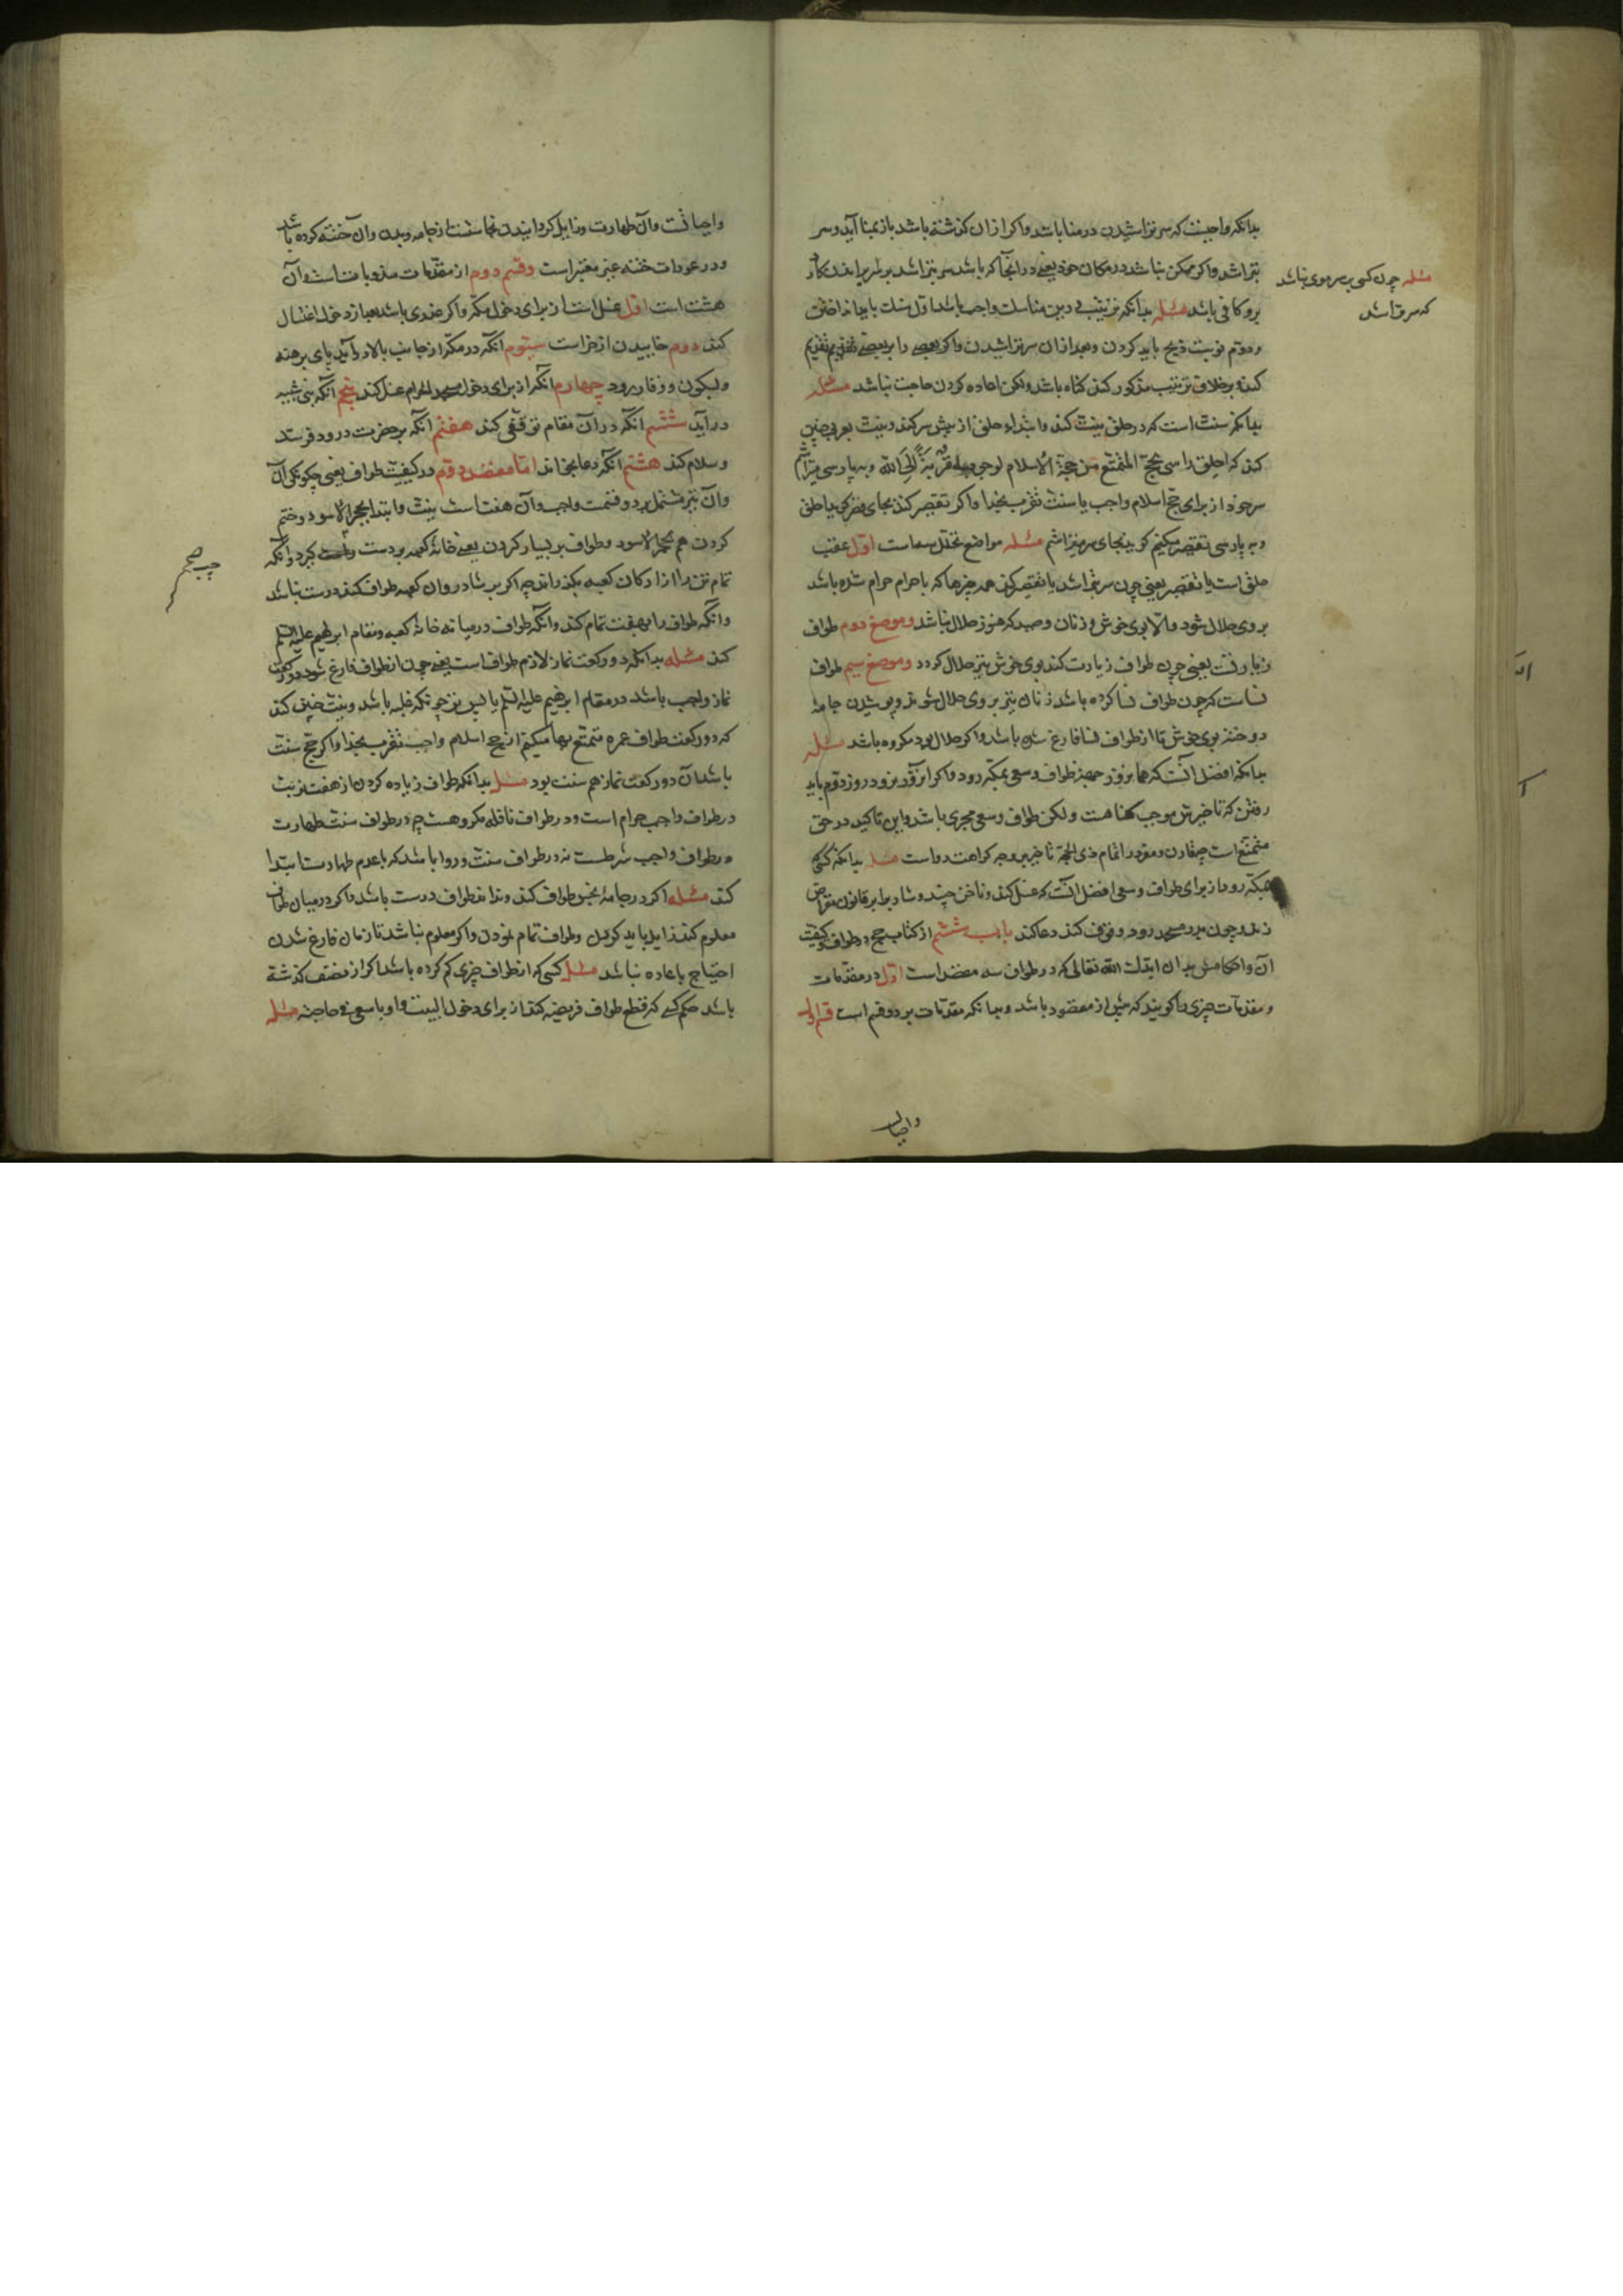 بدانکه واجبست که سر تراشیدن در منا باشد واکر ازان کذشته باشد باز بمنا آید وسر
بتراشد واکر ممکن نباشد در مکان خود یعنی در آنجا که باشد سر بتراشد
برو کافی باشد مسئله بدانکه ترتیب درین مناسك واجب باشد اول سنك باید انداختن
ودوم نوبت ذبح باید کردن وبعد ازان سر تراشیدن واکر بعضی را بر بعضی تقدیم
کند وبرخلاف ترتیب مذکور کند کناه باشد ولکن اعاده کردن حاجت نباشد مسئله
بدانکه سنت است که در حلق نیت کند وابتداء حلق از پیش سر کند ونیت بعربی چنین
کند که احلق راسی بحج المتمتع من حجة الاسلام لوجوبه قربة الی الله وبه پارسی میتراشم
سر خود از برای حج اسلام واجب یا سنت تقرب بخدا واکر تقصیر کند بجای
وبه پارسی تقصیر میکنم کوید بجای سر میتراشم مسئله مواضع تحلل سه است اول عقب
حلق است یا تقصیر یعنی چون سر بتراشد یا تقصیر کند همه چیزها که باحرام حرام شده باشد
بروی حلال شود والا بوی خوش و زنان وصید که هنوز حلال نباشد وموضع دوم طواف
زیارتست یعنی چون طواف زیارت کند بوی خوش نیز حلال کردد وموضع سیم طواف
نساست که چون طواف نسا کرده باشد زنان نیز بروی حلال شوند وپوشیدن جامهٔ
دوخته وبوی خوش تا از طواف نسا فارغ شدن باشد واکر حلال بود مکروه باشد مسئله
بدانکه افضل آنست که هم امروز از جهة طواف وسعی بمکه رود واکر امروز نرود روز دوم باید
رفتن که تاخیرش موجب کناهست ولکن طواف وسعی مجزی باشد واین تاکید در حق
متمتع است چه قارن ومفرد را تمام ذی الحجه تاخیر بر وجه کراهت رواست مسئله بدانکه کسی
بمکه رود از برای طواف وسعی افضل آنست که غسل کند وناخن چیند وشارب را بر قانون مقراض
زند وچون بدر مسجد رود وقوف کند دعا کند باب ششم از کتاب حج در طواف وکیفیت
آن واحکامش بدان ایدك الله تعالی که در طواف سه مقصد است اول در مقدمات
ومقدمات چیزی را کویند که پیش از مقصود باشد وبدانکه مقدمات بر دو قسم است قسم اول
مسئله چون کسی بر سر موی نباشد
که سر تراشد
واجبات
واجباتست وآن طهارت وزایل کردانیدن نجاستست از جامه وبدن وآن ختنه کرده باشد
ودر عورات ختنه غیر معتبر است وقسم دوم از مقدمات مندوباتست وآن
هشت است اول غسل است از برای دخول مکه واکر عذری باشد بعد از دخول اغتسال
کند دوم خاییدن اذخر است سیوم آنکه در مکه از جانب بالا در آید پای برهنه
وبسکون ووقار رود چهارم آنکه از برای دخول مسجد الحرام غسل کند پنجم آنکه ببنی شیبه
در آید ششم آنکه در آن مقام توقفی کند هفتم آنکه بر حضرت درود فرستد
وسلام کند هشتم آنکه دعا بخواند اما مقصد دوم در کیفیت طواف یعنی چکونکی آن
وآن نیز مشتمل بر دو قسمت واجب وآن هفت است نیت وابتدا بحجر الاسود وختم
کردن هم بحجر الاسود وطواف بر یسار کردن یعنی خانهٔ کعبه بر دست کیرد وآنکه
تمام تن را از ارکان کعبه بکذراند چه اکر بر شادروان کعبه طواف کند درست نباشد
وآنکه طواف را بهفت تمام کند وآنکه طواف در میانه خانهٔ کعبه ومقام ابراهیم علیه السلم
کند مسئله بدانکه دو رکعت نماز لازم طوافست یعنی چون از طواف فارغ شود دو رکعت
نماز واجب باشد در مقام ابراهیم علیه السلم یا پس تر چونکه غلبه باشد ونیت چنین کند
که دو رکعت طواف عمره متمتع بها میکنم از حج اسلام واجب تقرب بخدا واکر حج سنت
باشد آن دو رکعت نماز هم سنت بود مسئله بدانکه طواف زیاده کردن از هفت نوبت
در طواف واجب حرام است ودر طواف نافله مکروهست چه در طواف سنت طهارت
در طواف واجب شرطست نه در طواف سنت وروا باشد که باعدم طهارت ابتدا
کند مسئله اکر در جامهٔ نجس طواف کند ونداند طواف درست باشد واکر در میان طواف
معلوم کند زایل باید کردن وطواف تمام نمودن واکر معلوم نباشد تا زمان فارغ شدن
احتیاج باعاده نباشد مسئله کسی که از طواف چیزی کم کرده باشد اکر از نصف کذشته
باشد حکم کسی که قطع طواف فریضه کند از برای دخول البیت او یا سعی فی حاجته مسئله
چپ صح